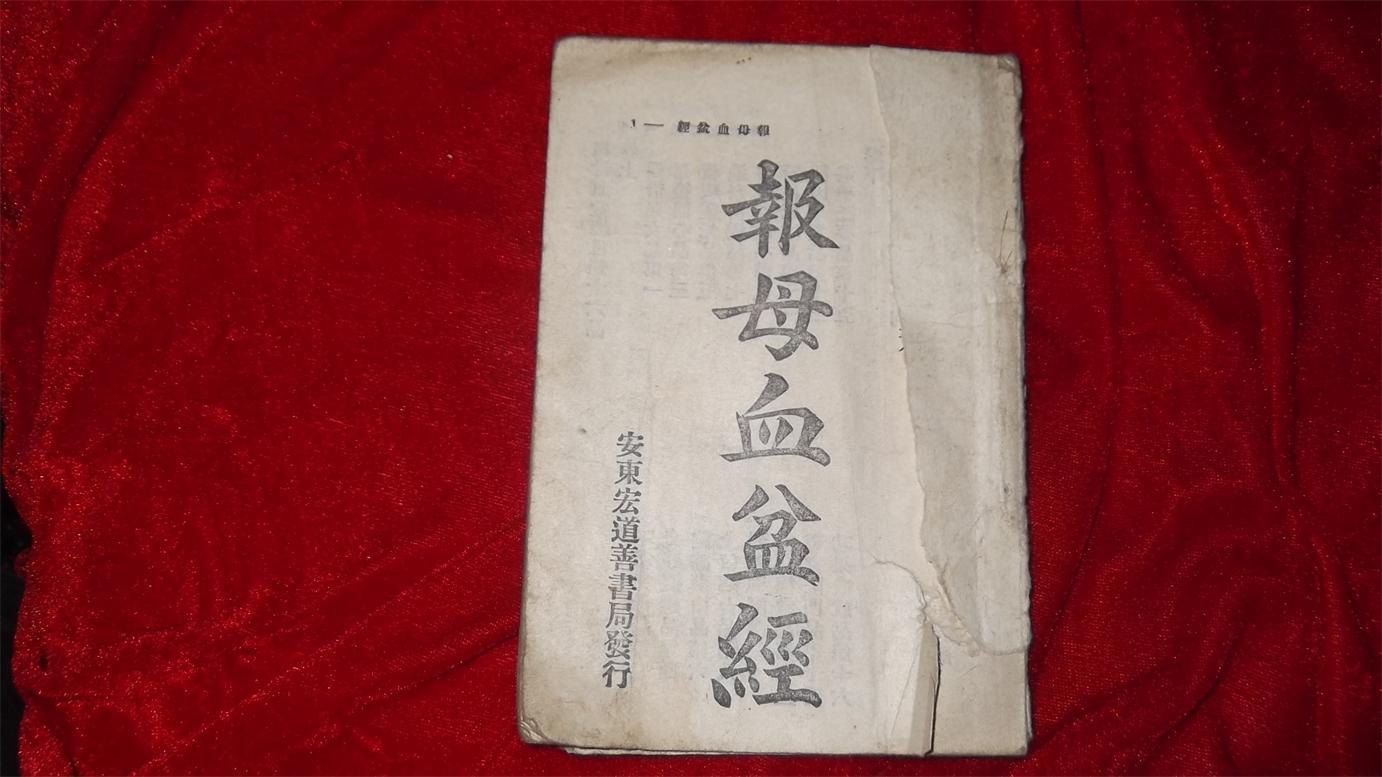 報母血盆經 — 1
報母血盆經
安東宏道善書局發行